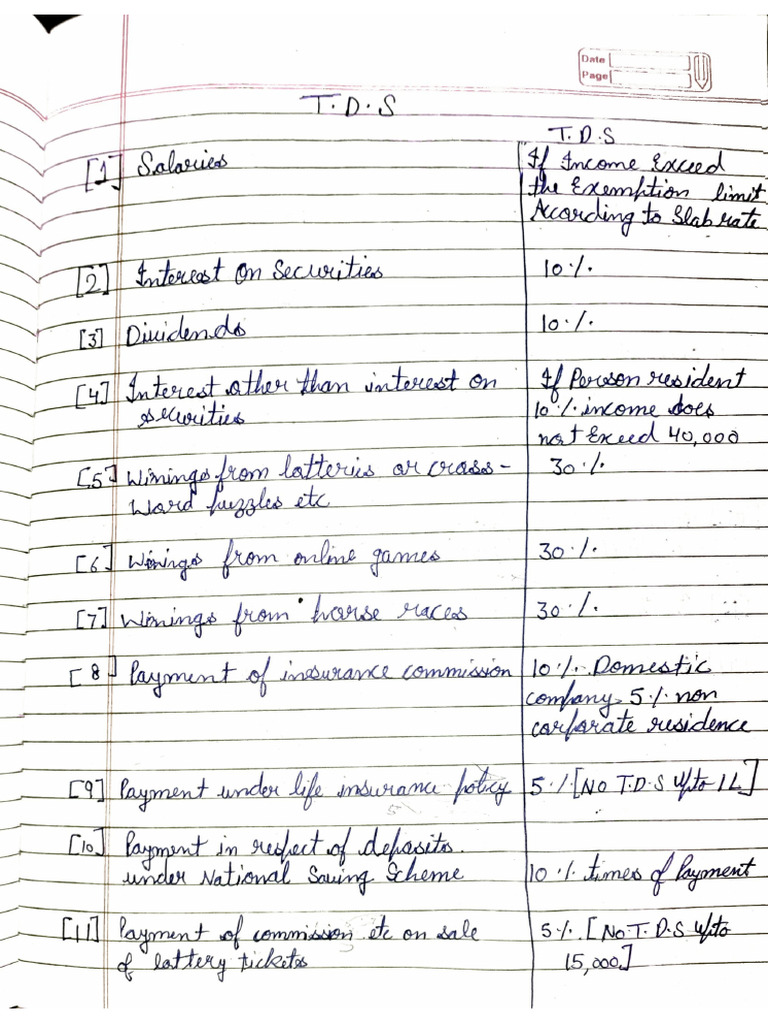 Date
Page
T.D.S
T.D.S
[1] Salaries
If Income Exceed
the Exemption limit
According to Slab rate
[2] Interest on Securities 10%.
[3] Dividends 10%.
[4] Interest other than interest on
securities
If Person resident
10% income does
not Exceed 40,000
[5] Winings from lotteries or cross-
word puzzles etc
30%.
[6] Winings from online games 30%.
[7] Winings from horse races 30%.
[8] Payment of insurance commission
10%. Domestic
company. 5% non
corporate residence
[9] Payment under life insurance policy 5% [NO T.D.S upto 1L]
[10] Payment in respect of deposits.
under National Saving Scheme
10% times of Payment
[11] Payment of commission etc on sale
of lottery tickets
5%. [No T.D.S upto
15,000]